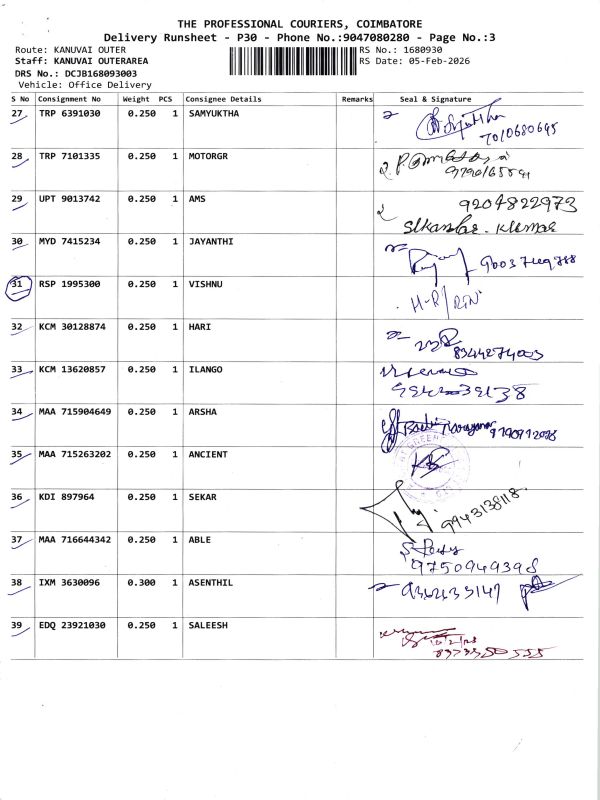 THE PROFESSIONAL COURIERS, COIMBATORE
Delivery Runsheet - P30 - Phone No.:9047080280 - Page No.:3
Route: KANUVAI OUTER
RS No.: 1680930
Staff: KANUVAI OUTERAREA
RS Date: 05-Feb-2026
DRS No.: DCJB168093003
Vehicle: Office Delivery
S No Consignment No Weight PCS Consignee Details Remarks Seal & Signature
27 TRP 6391030 0.250 1 SAMYUKTHA
7010680695
28 TRP 7101335 0.250 1 MOTORGR
29 UPT 9013742 0.250 1 AMS
9204822973
30 MYD 7415234 0.250 1 JAYANTHI
31 RSP 1995300 0.250 1 VISHNU
32 KCM 30128874 0.250 1 HARI
8344274003
33 KCM 13620857 0.250 1 ILANGO
34 MAA 715904649 0.250 1 ARSHA
35 MAA 715263202 0.250 1 ANCIENT
36 KDI 897964 0.250 1 SEKAR
9943138118
37 MAA 716644342 0.250 1 ABLE
9750949398
38 IXM 3630096 0.300 1 ASENTHIL
39 EDQ 23921030 0.250 1 SALEESH